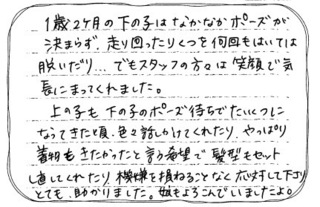 1歳2ヶ月の下の子はなかなかポーズが
決まらず、走り回ったりくつを何回もはいては
脱いだり…でもスタッフの方々は笑顔で気
長にまってくれました。
上の子も下の子のポーズ待ちでたいくつに
なってきた頃、色々話しかけてくれたり、やっぱり
着物もきたかったと言う希望で髪型もセット
し直してくれたり、機嫌を損ねることなく応対して下さり
とても、助かりました。娘もよろこんでいましたよ。